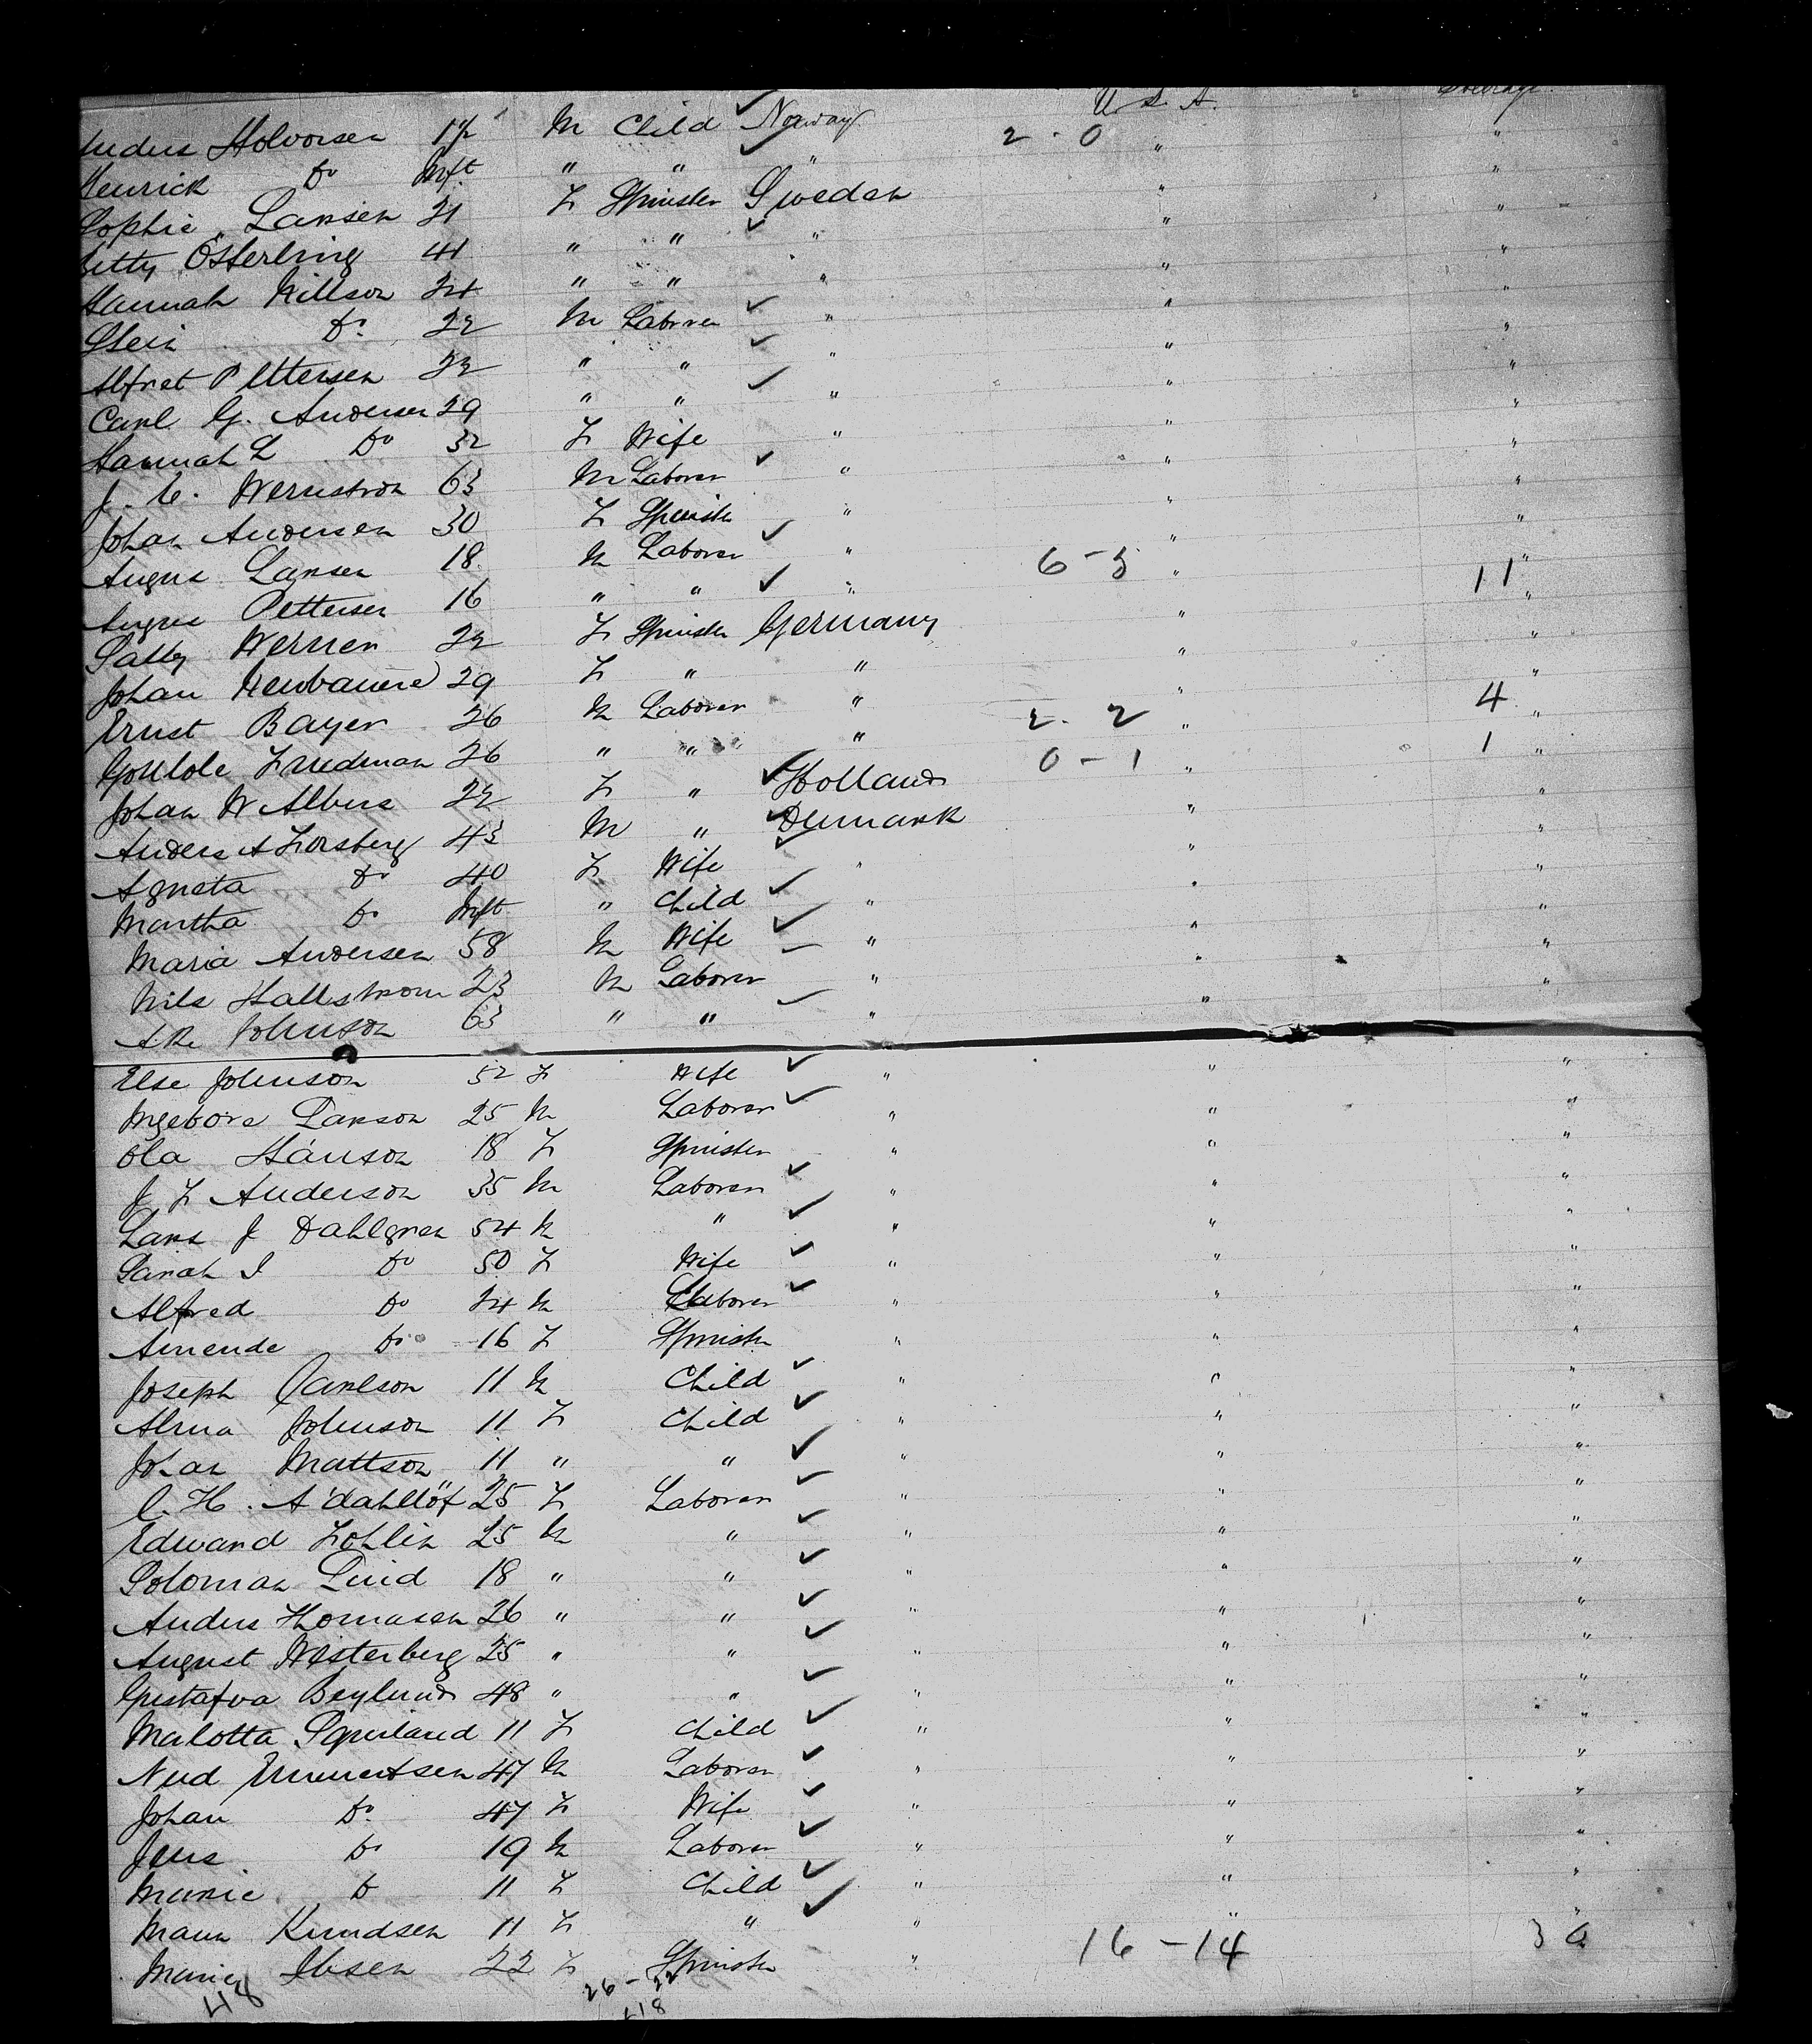 U. S. A.
Holvorsen 1½ M Child Norway 2 - 0 "
Henrick Do Inft " " " " "
Sophie Lansen 21 F Spinster Sweden " "
Österling 41 " " " " "
Hannah Nillson 24 " " " " "
Do 22 M Laborer " " "
Alfret Pettersen 22 " " " " "
Carl G. Andersen 29 " " " " "
Hannah L Do 32 F Wife " " "
J. E. Wernstron 63 M Laborer " " "
Johan Andersen 30 F Spinster " " "
August Lansen 18 M Laborer " 6 - 5 " 11 "
Pettersen 16 " " " " "
Sally Werner 22 F Spinster Germany " "
Johan Neubauere 29 F " " " "
Ernst Bayer 26 M Laborer " 2 - 2 " 4 "
Friedman 26 " " " 0 - 1 " 1 "
Johan W Albers 22 F " Holland " "
Anders A Forsberg 43 M " Denmark " "
Agneta Do 40 F Wife " " "
Martha Do Inft " Child " " "
Maria Andersen 58 M Wife " " "
Nils Hallstrom 23 M Laborer " " "
Johnson 63 " " " " "
Else Johnson 52 F Wife " " "
Ingebore Larson 25 M Laborer " " "
Ola Hanson 18 F Spinster " " "
J F Anderson 35 M Laborer " " "
Lars J Dahlgren 54 M " " " "
Sarah I Do 50 F Wife " " "
Alfred Do 24 M Laborer " " "
Amende Do 16 F Spinster " " "
Joseph Carlson 11 M Child " " "
Alma Johnson 11 F Child " " "
Johan Mattson 11 " " " " "
C. H. A dahllöf 25 F Laborer " " "
Edward Fohlin 25 M " " " "
Soloman Lind 18 " " " " "
Anders Thomasen 26 " " " " "
August Westerberg 25 " " " " "
Gustafva Boylund 48 " " " " "
Malotta 11 F Child " " "
47 M Laborer " " "
Johan Do 47 F Wife " " "
Jens Do 19 M Laborer " " "
Marie Do 11 F Child " " "
Knudsen 11 F " " " "
Marie Ibsen 22 F Spinster " 16 - 14 30
48 26 - 22
48